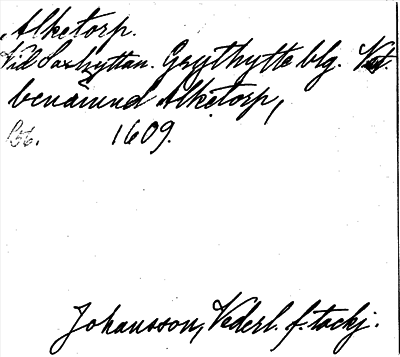 Alketorp.
Vid Saxhyttan. Grythytte blg. Vst.
benämnd Alketorp,
1609.
Johansson, Vederl. f. tackj.